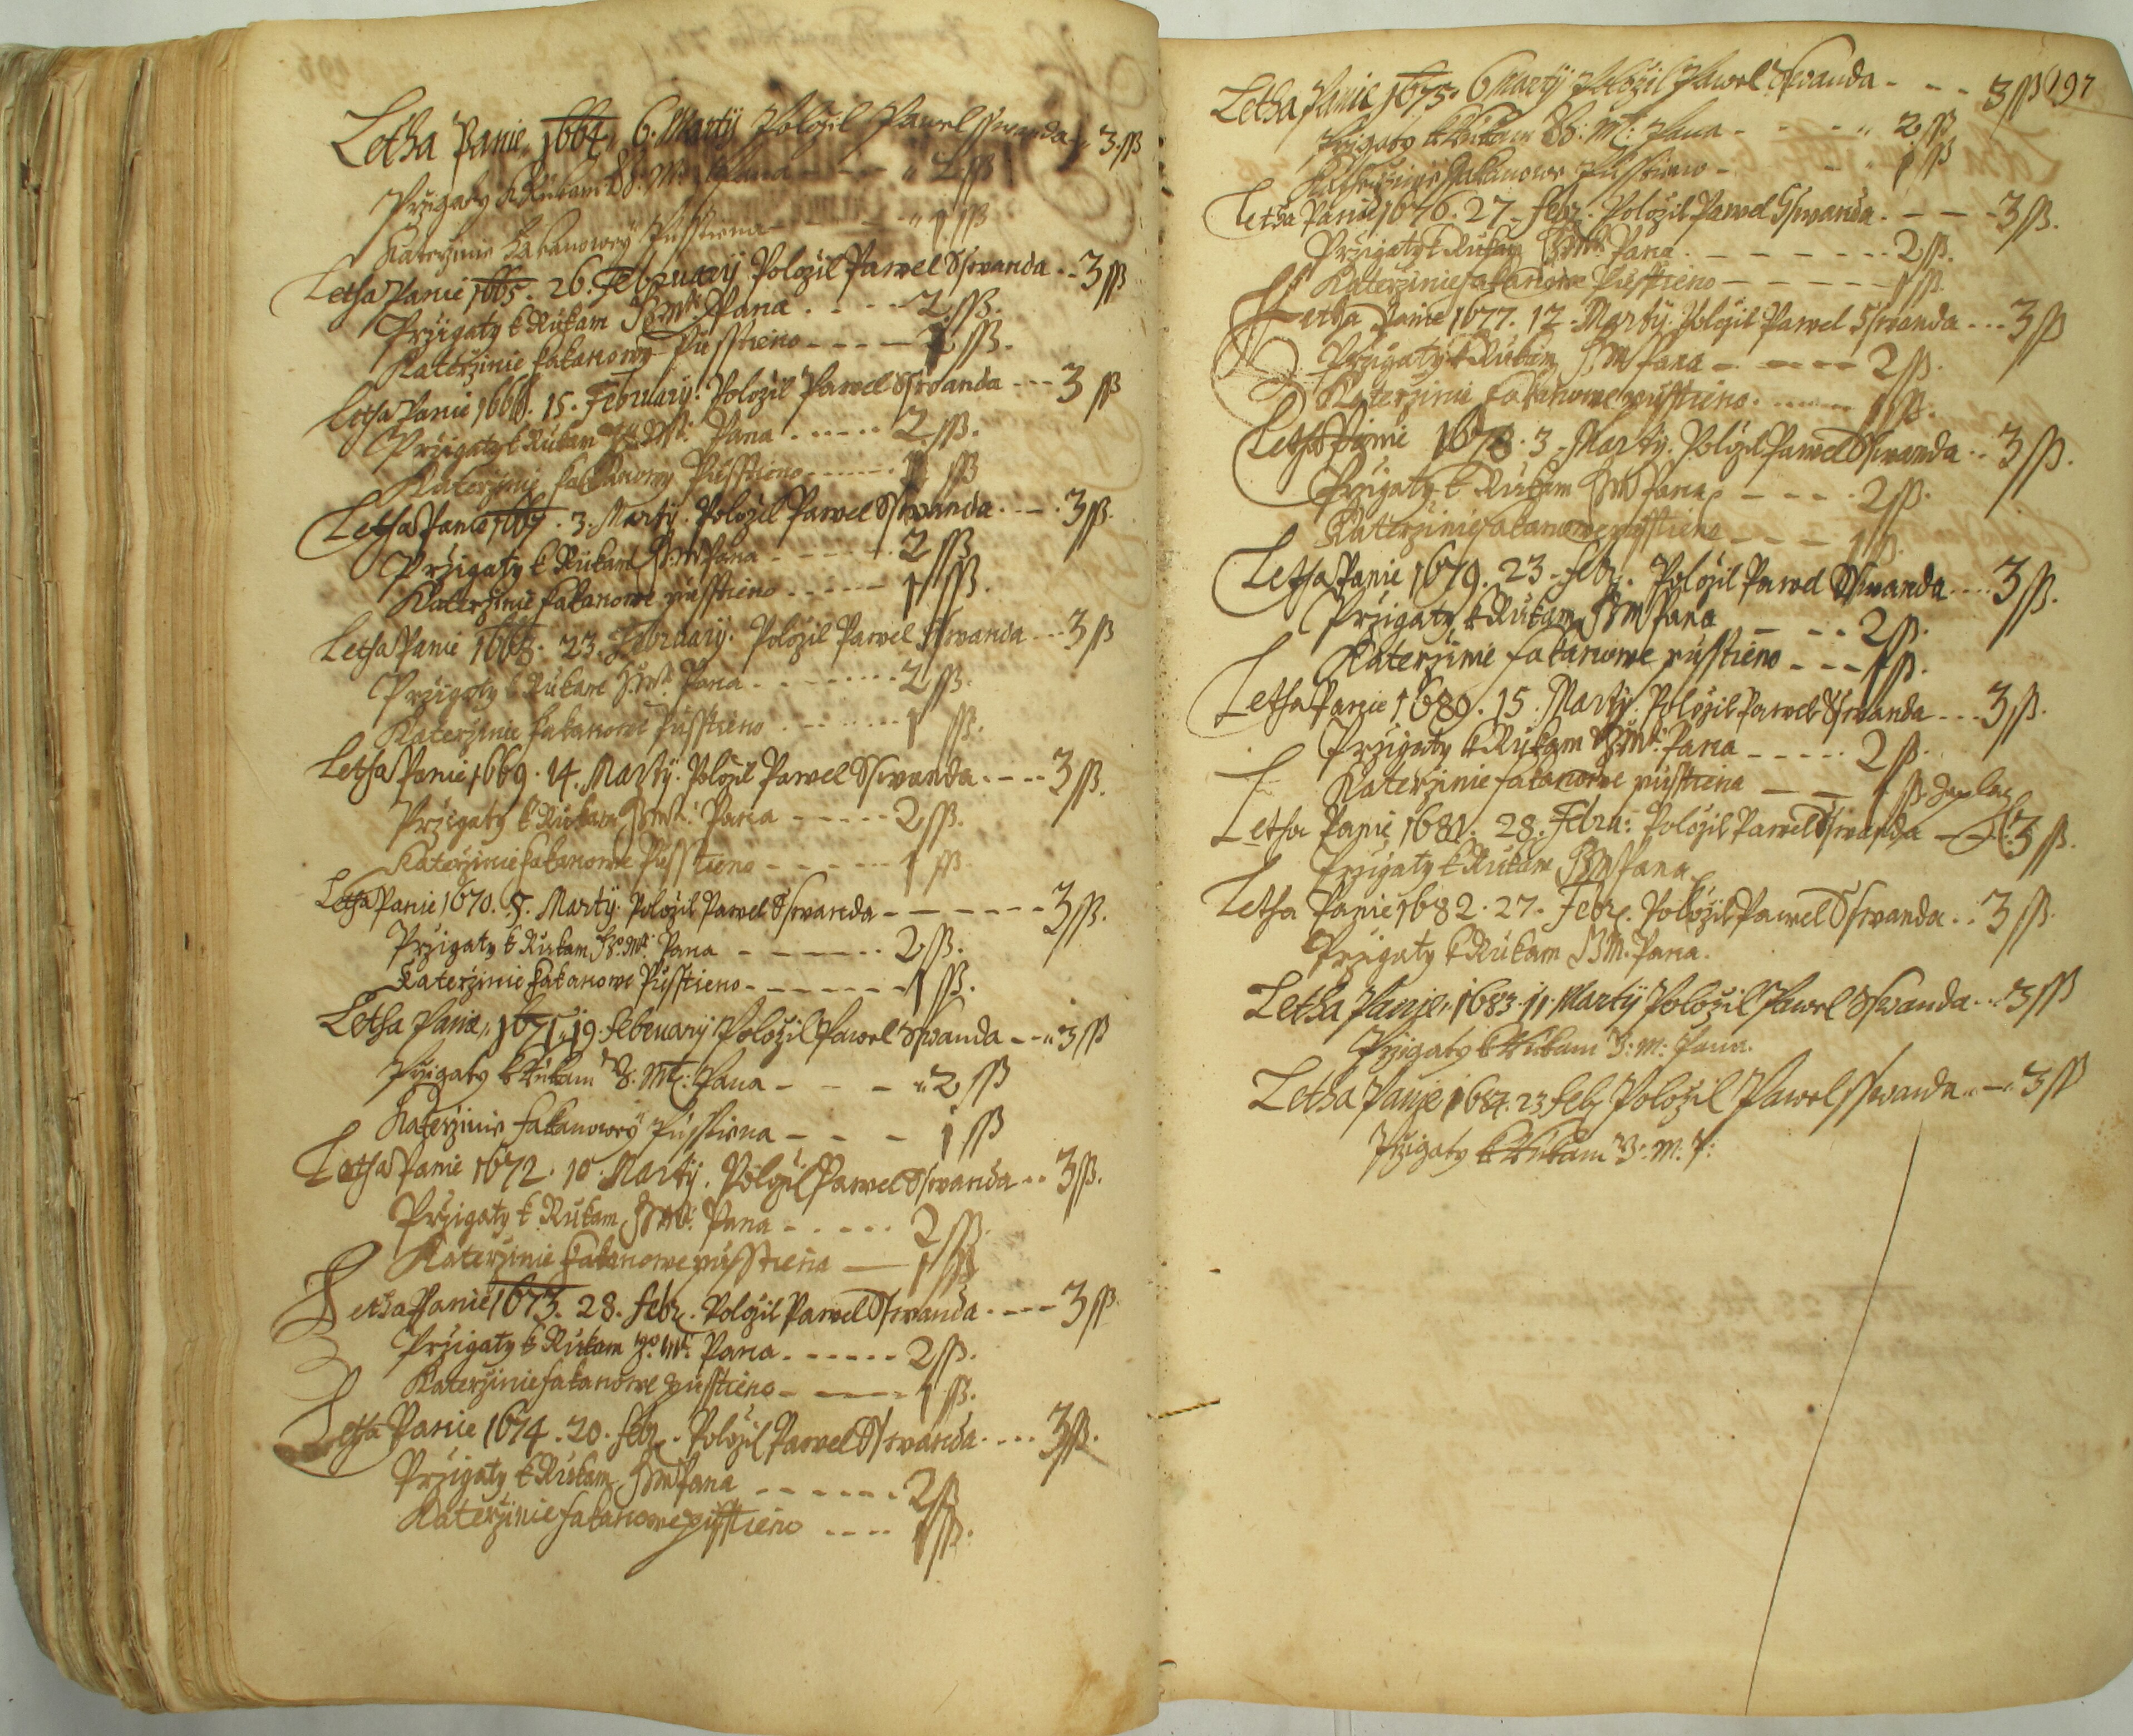 Letha Panie 1664 6. Marty Položil Pawel Sswanda .. 3 ß
Przigaty k Rukam J: Mti: Pana - - - 2 ß
Katerzinie Fakanowey Pusstiena - - - 1 ß
Letha Panie 1665. 26. February Položil Pawel Sswanda .. 3 ß
Przigaty k Rukam J Mti: Pana . - - - 2 ß.
Katerzinie Fakanowy Pusstieno - - - - 1 ß.
Letha Panie 1666. 15. February. Položil Pawel Sswanda - - - 3 ß
Przigaty k Rukam Mti: Pana . - - - - 2 ß.
Katerzinie Fakanowy Pusstieno - - - - 1 ß
Letha Panie 1667. 3. Marty. Položil Pawel Sswanda. - - . 3 ß.
Przigaty k Rukam J M Pana - - - - - 2 ß
Katerzinie Fakanowe pusstieno - - - - - 1 ß.
Letha Panie 1668. 23. February. Položil Pawel Sswanda - - 3 ß
Przigaty k Rukam J. Mti. Pana - - - - - 2 ß.
Katerzinie Fakanowe Pusstieno - - - - - 1 ß.
Letha Panie 1669. 14. Marty. Položil Pawel Sswanda. - - - 3 ß.
Przigaty k Rukam J Mti: Pana - - - - - 2 ß.
Katerzinie Fakanowe Pusstieno - - - - - 1 ß
Letha Panie 1670. 8. Marty. Položil Pawel Sswanda - - - - - - 3 ß.
Przigaty k Rukam Jho. Mti: Pana - - - - - 2 ß.
Katerzinie Fakanowe Pusstieno - - - - - - 1 ß.
Letha Panie 1671. 19. February Položil Pawel Sswanda - - - 3 ß
Przigaty k Rukam J. Mti: Pana - - - 2 ß
Katerzinie Fakanowey Pusstiena - - - 1 ß
Letha Panie 1672. 10. Marty. Položil Pawel Sswanda .. 3 ß.
Przigaty k Rukam J Mti: Pana - - - - - 2 ß.
Katerzinie Fakanowe pusstiena — 1 ß
Letha Panie 1673. 28. Febr. Položil Pawel Sswanda . - - - 3 ß
Przigaty k Rukam Jho. Mti: Pana. - - - - - 2 ß.
Katerzinie Fakanowe pusstieno - - - - 1 ß.
Letha Panie 1674. 20. Febr. Položil Pawel Sswanda. - - . 3 ß.
Przigaty k Rukam J M Pana - - - - - - 2 ß
Katerzinie Fakanowe pusstieno - - - - 1 ß.
197
Letha Panie 1675. 6 Marty Položil Pawel Sswanda - - - 3 ß
Przigaty k Rukam J: Mt: Pana - - - - 2 ß
Katerzinie Fakanowe Pusstieno - - - 1 ß
Letha Panie 1676. 27. Febr. Položil Pawel Sswanda. - - - 3 ß.
Przigaty k Rukam J Mti: Pana. - - - - - - 2 ß.
Katerzinie Fakanowe Pusstieno - - - - - 1 ß.
Letha Panie 1677. 12. Marty. Položil Pawel Sswanda . . . 3 ß
Przigaty k Rukam J M Pana - - - - - 2 ß.
Katerzinie Fakanowe pusstieno. - - - - 1 ß.
Letha Panie 1678. 3. Marty. Položil Pawel Sswanda .. 3 ß.
Przigaty k Rukam J M Pana - - - . 2 ß.
Katerzinie Fakanowe pusstieno - - - - 1 ß.
Letha Panie 1679. 23. Febr. Položil Pawel Sswanda. . . . 3 ß.
Przigaty k Rukam J M Pana - - - 2 ß.
Katerzinie Fakanowe pusstieno - - - 1 ß.
Letha Panie 1680. 15. Marty. Položil Pawel Sswanda - - - 3 ß.
Przigaty k Rukam J Mti: Pana - - - - - 2 ß.
Katerzinie Fakanowe pusstiena — — 1 ß.
Letha Panie 1681. 28. Febru: Položil Pawel Sswanda - 3 ß.
Przigaty k Rukam J M Pana
Letha Panie 1682. 27. Febr. Položil Pawel Sswanda. . 3 ß.
Przigaty k Rukam J M. Pana.
Letha Panie 1683. 11. Marty Položil Pawel Sswanda. . . 3 ß
Przigaty k Rukam J: M: Pana.
Letha Panie 1684. 23 Feb Položil Pawel Sswanda . — 3 ß
Przigaty k Rukam J: M: P: